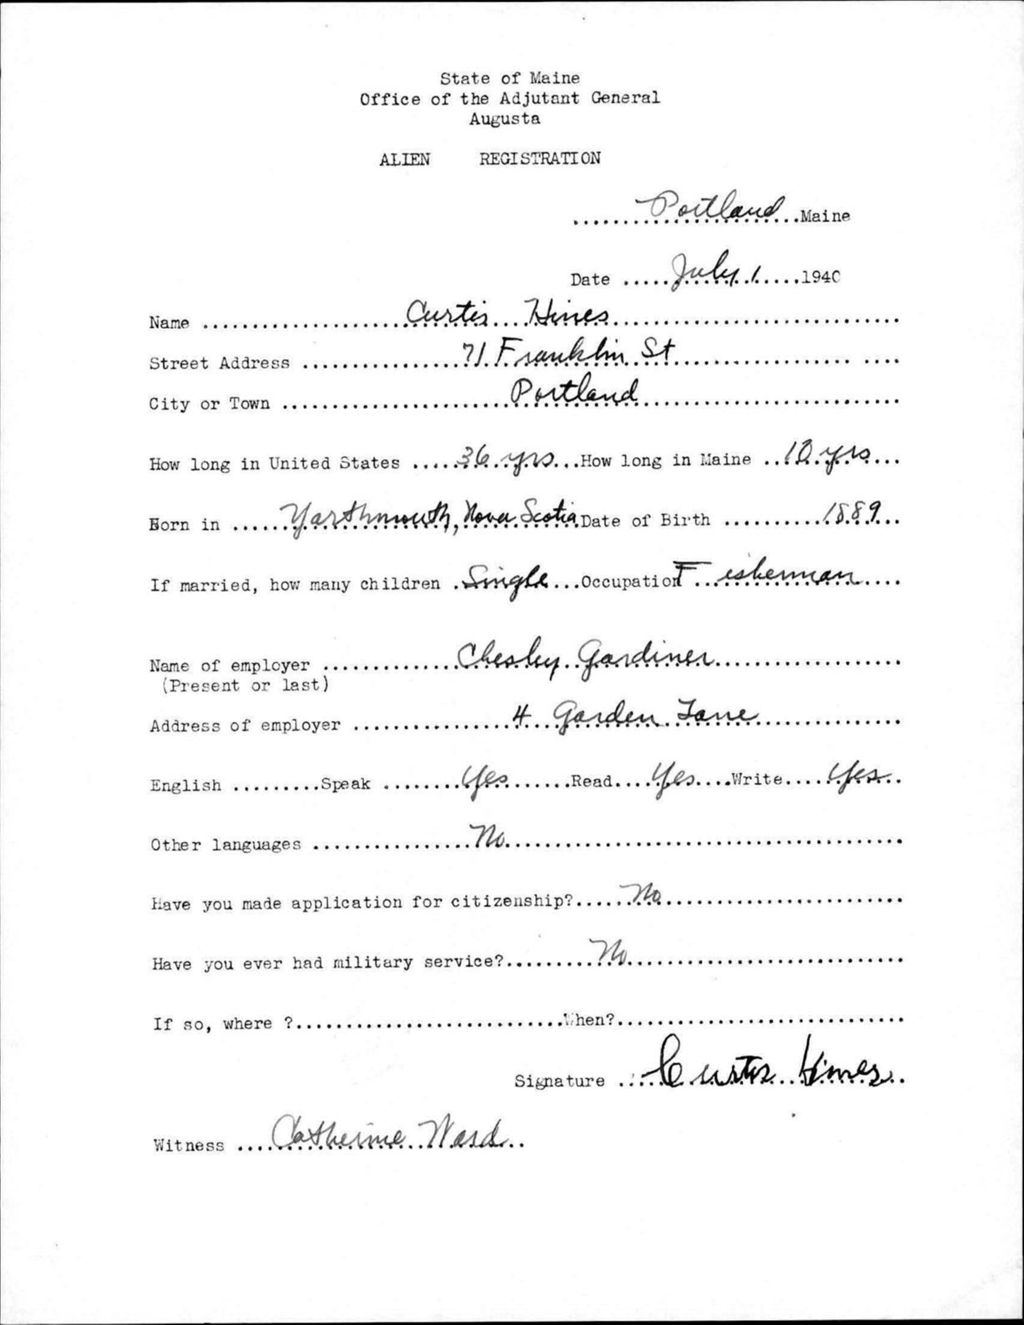 State of Maine
Office of the Adjutant General
Augusta
ALIEN REGISTRATION
Portland Maine
Date July 1 1940
Name Curtis Hines
Street Address 71 Franklin St
City or Town Portland
How long in United States 36 yrs How long in Maine 12 yrs
Born in Yarthmouth, Nova Scotia Date of Birth 1889
If married, how many children Single Occupation Fisherman
Name of employer Chesley Gardiner
(Present or last)
Address of employer 4 Garden Lane
English Speak Yes Read Yes Write Yes
Other languages No
Have you made application for citizenship? No
Have you ever had military service? No
If so, where ? When?
Signature Curtis Hines
Witness Catherine Ward